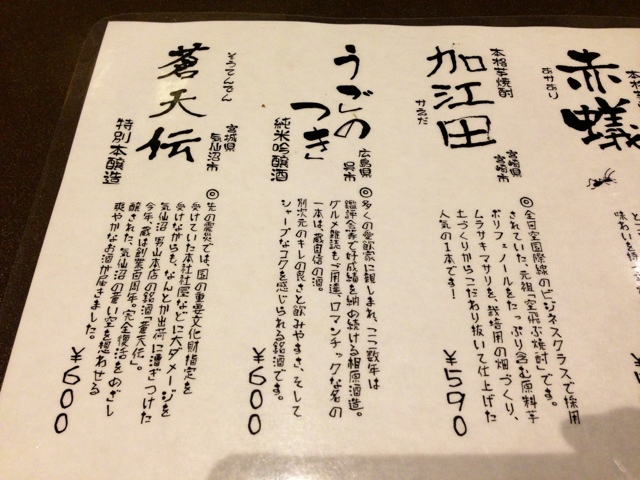 本格
赤蟻
あかあり
味わいを
本格芋焼酎
加江田
かえだ
宮崎県
宮崎市
◎全日空国際線のビジネスクラスで採用
されていた、元祖「空飛ぶ焼酎」です。
ポリフェノールをたっぷり含む原料芋
ムラサキマサリを、栽培用の畑づくり、
土づくりからこだわり抜いて仕上げた
人気の1本です!
¥590
うごの
つき
純米吟醸酒
広島県
呉市
◎多くの愛飲家に親しまれ、ここ数年は
鑑評会等で好成績を納め続ける相原酒造。
グルメ雑誌もご用達、ロマンチックな名の
一本は、蔵自信の酒。
別次元のキレの良さと飲みやすさ、そして
シャープなコクを感じられる銘酒です。
¥600
そうてんでん
蒼天伝
宮城県
気仙沼市
特別本醸造
◎先の震災では、国の重要文化財指定を
受けていた本社社屋などに大ダメージを
受けながらも、なんとか出荷に漕ぎつけた
気仙沼 男山本店の銘酒「蒼天伝」。
今年、蔵は創業百周年。完全復活をめざし
醸された、気仙沼の蒼い空を想わせる
爽やかなお酒が届きました。
¥600